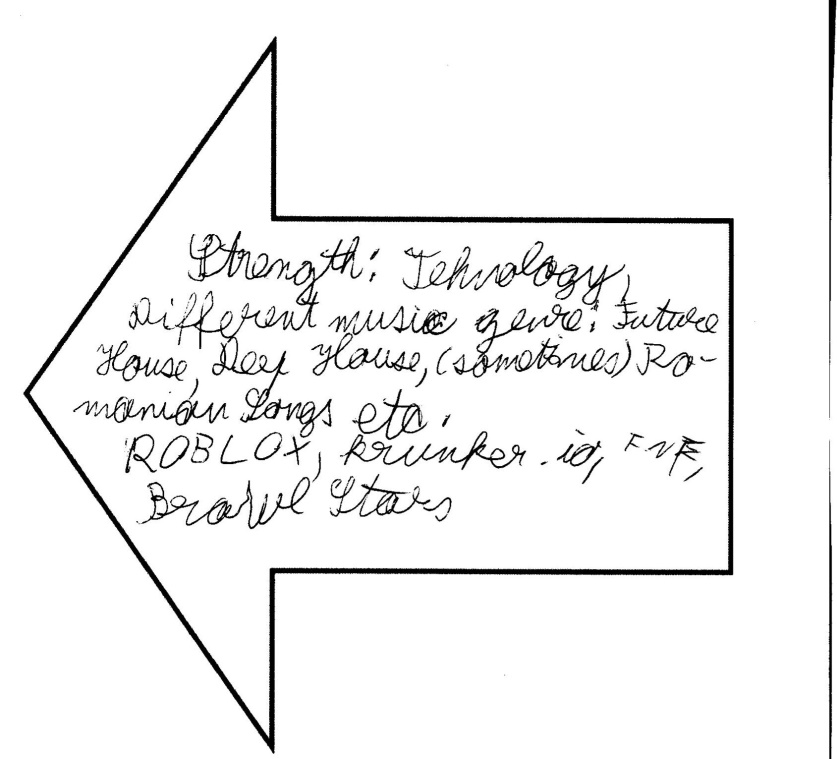 Strength: Tehnology,
Different music genre: Future
House, Deep House, (sometimes) Ro-
manian Songs etc.
ROBLOX, krunker.io, FNF,
Brawl Stars